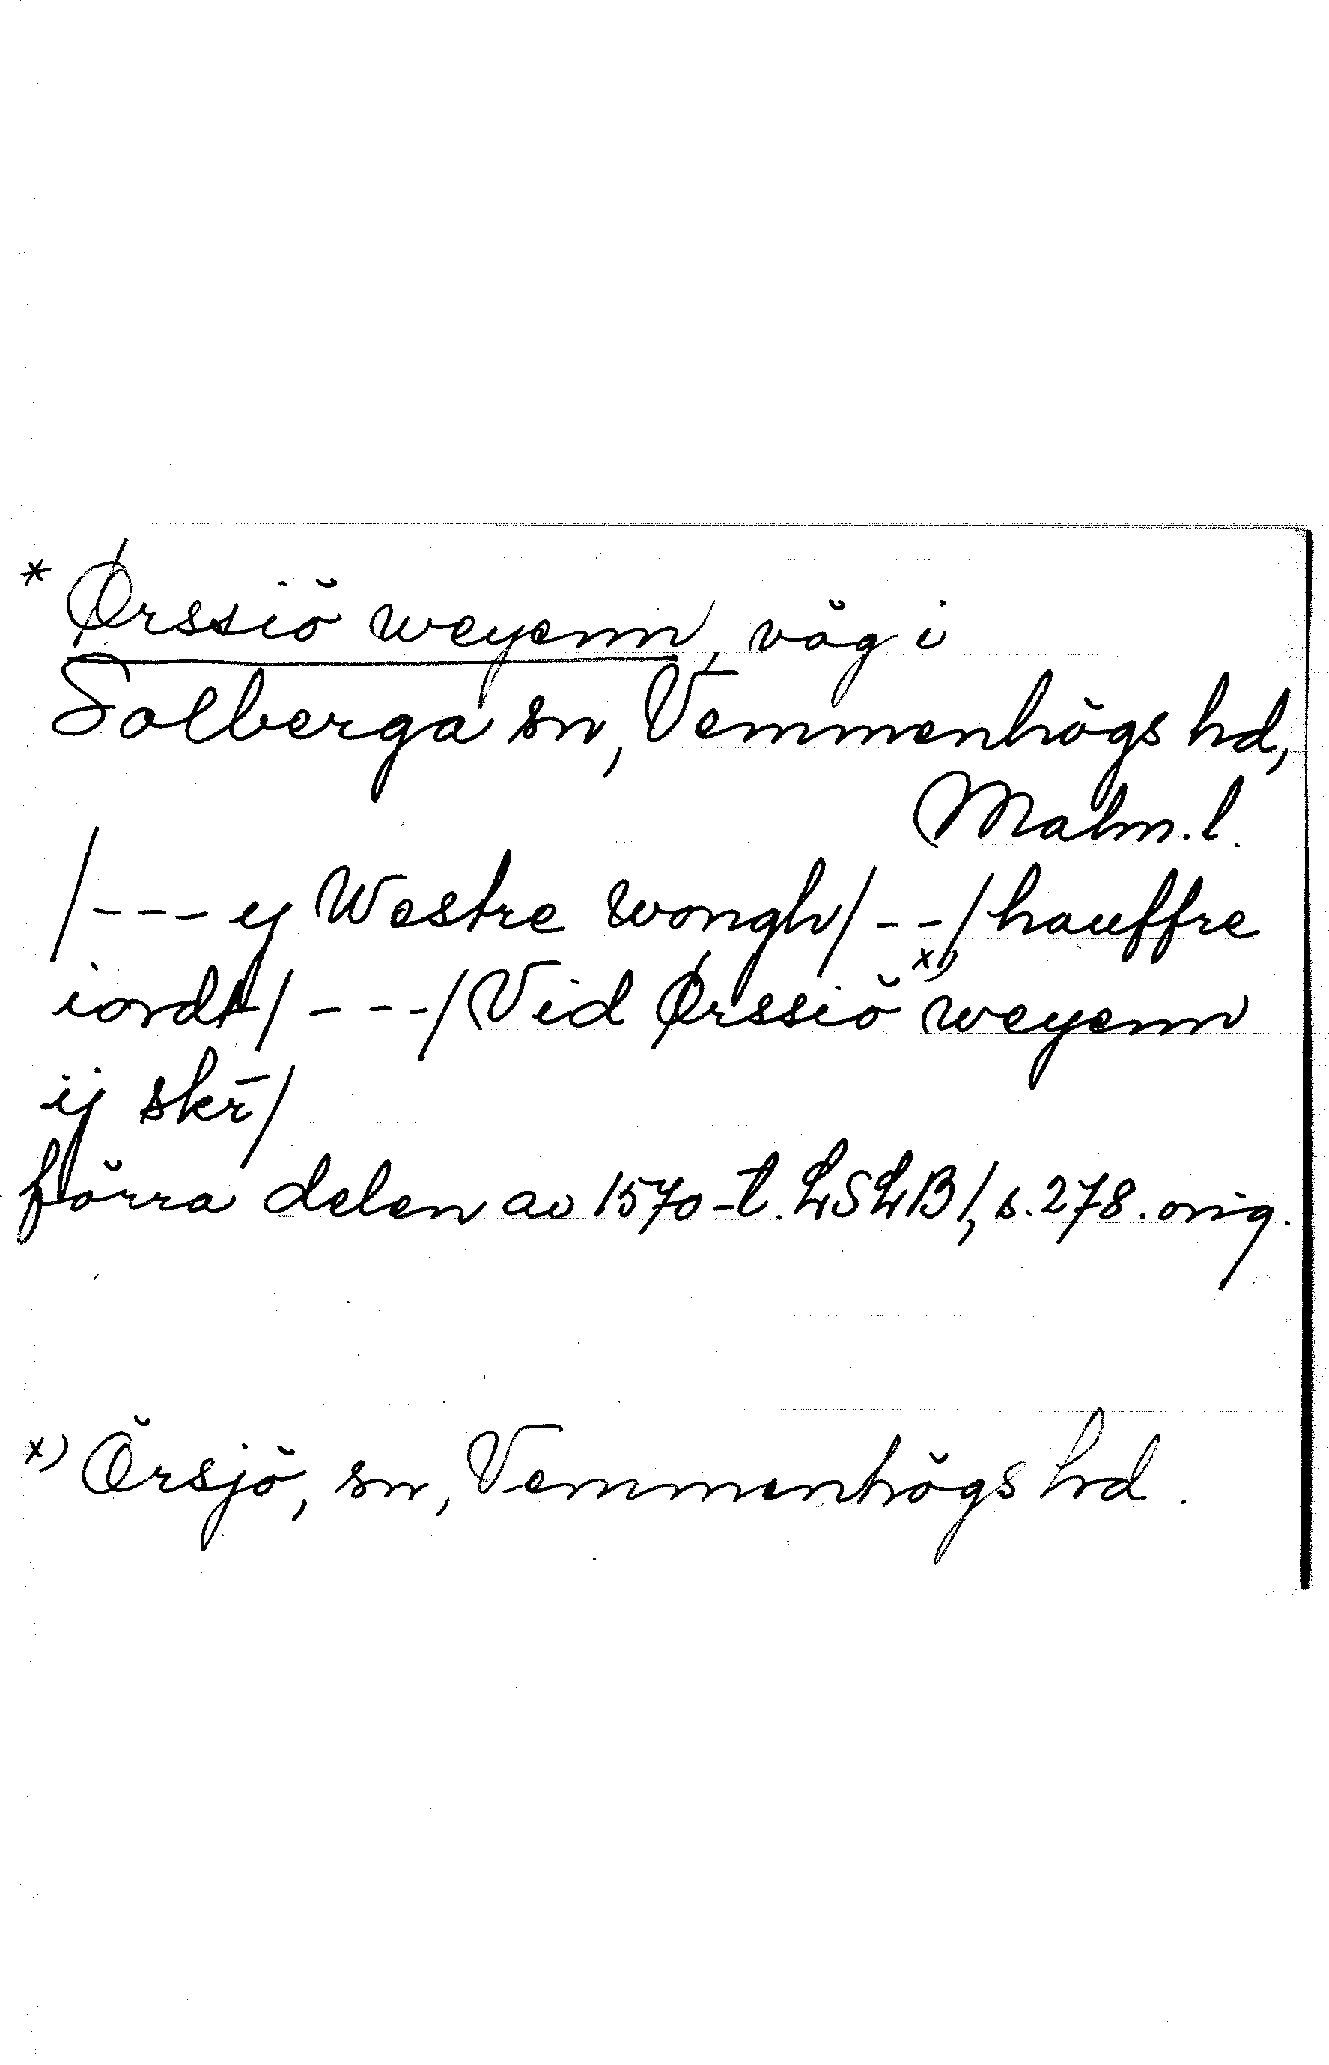 * Ørssiö weyenn, väg i
Solberga sn, Vemmenhögs hd,
Malm.l.
/--- ij Westre wongh/--/hauffre
iordt/---/Vid Ørssiö x) weyenn
ij skr̄/
förra delen av 1570-t. LSLB I, s. 278. orig.
x) Örsjö, sn, Vemmenhögs hd.